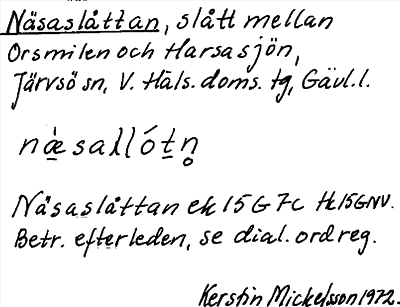 Näsaslåttan, slått mellan
Orsmilen och Harsasjön,
Järvsö sn, V. Häls. doms. tg, Gävl. l.
næ̀sallótn̥
Näsaslåttan ek 15 G 7c Hk 15GNV.
Betr. efterleden, se dial. ordreg.
Kerstin Mickelsson 1972.